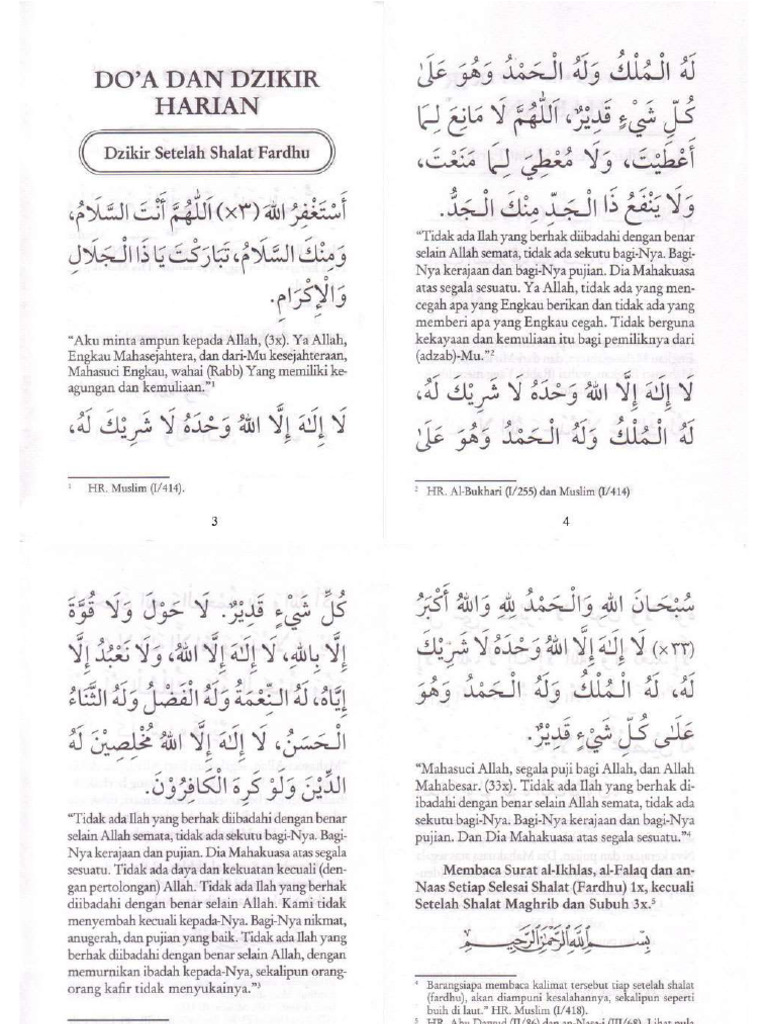 DO'A DAN DZIKIR
HARIAN
Dzikir Setelah Shalat Fardhu
أَسْتَغْفِرُ اللهَ (٣×) اَللّٰهُمَّ أَنْتَ السَّلَامُ،
وَمِنْكَ السَّلَامُ، تَبَارَكْتَ يَا ذَا الْجَلَالِ
وَالْإِكْرَامِ.
"Aku minta ampun kepada Allah, (3x). Ya Allah,
Engkau Mahasejahtera, dan dari-Mu kesejahteraan,
Mahasuci Engkau, wahai (Rabb) Yang memiliki ke-
agungan dan kemuliaan."1
لَا إِلَـٰهَ إِلَّا اللهُ وَحْدَهُ لَا شَرِيْكَ لَهُ،
1 HR. Muslim (I/414).
3
لَهُ الْمُلْكُ وَلَهُ الْحَمْدُ وَهُوَ عَلَىٰ
كُلِّ شَيْءٍ قَدِيْرٌ، اَللّٰهُمَّ لَا مَانِعَ لِمَا
أَعْطَيْتَ، وَلَا مُعْطِيَ لِمَا مَنَعْتَ،
وَلَا يَنْفَعُ ذَا الْجَدِّ مِنْكَ الْجَدُّ.
"Tidak ada Ilah yang berhak diibadahi dengan benar
selain Allah semata, tidak ada sekutu bagi-Nya. Bagi-
Nya kerajaan dan bagi-Nya pujian. Dia Mahakuasa
atas segala sesuatu. Ya Allah, tidak ada yang men-
cegah apa yang Engkau berikan dan tidak ada yang
memberi apa yang Engkau cegah. Tidak berguna
kekayaan dan kemuliaan itu bagi pemiliknya dari
(adzab)-Mu."2
لَا إِلَـٰهَ إِلَّا اللهُ وَحْدَهُ لَا شَرِيْكَ لَهُ،
لَهُ الْمُلْكُ وَلَهُ الْحَمْدُ وَهُوَ عَلَىٰ
2 HR. Al-Bukhari (I/255) dan Muslim (I/414)
4
كُلِّ شَيْءٍ قَدِيْرٌ. لَا حَوْلَ وَلَا قُوَّةَ
إِلَّا بِاللهِ، لَا إِلَـٰهَ إِلَّا اللهُ، وَلَا نَعْبُدُ إِلَّا
إِيَّاهُ، لَهُ النِّعْمَةُ وَلَهُ الْفَضْلُ وَلَهُ الثَّنَاءُ
الْحَسَنُ، لَا إِلَـٰهَ إِلَّا اللهُ مُخْلِصِيْنَ لَهُ
الدِّيْنَ وَلَوْ كَرِهَ الْكَافِرُوْنَ.
"Tidak ada Ilah yang berhak diibadahi dengan benar
selain Allah semata, tidak ada sekutu bagi-Nya. Bagi-
Nya kerajaan dan pujian. Dia Mahakuasa atas segala
sesuatu. Tidak ada daya dan kekuatan kecuali (den-
gan pertolongan) Allah. Tidak ada Ilah yang berhak
diibadahi dengan benar selain Allah. Kami tidak
menyembah kecuali kepada-Nya. Bagi-Nya nikmat,
anugerah, dan pujian yang baik. Tidak ada Ilah yang
berhak diibadahi dengan benar selain Allah, dengan
memurnikan ibadah kepada-Nya, sekalipun orang-
orang kafir tidak menyukainya."3
سُبْحَانَ اللهِ وَالْحَمْدُ لِلهِ وَاللهُ أَكْبَرُ
(٣٣×) لَا إِلَـٰهَ إِلَّا اللهُ وَحْدَهُ لَا شَرِيْكَ
لَهُ، لَهُ الْمُلْكُ وَلَهُ الْحَمْدُ وَهُوَ
عَلَىٰ كُلِّ شَيْءٍ قَدِيْرٌ.
"Mahasuci Allah, segala puji bagi Allah, dan Allah
Mahabesar. (33x). Tidak ada Ilah yang berhak di-
ibadahi dengan benar selain Allah semata, tidak ada
sekutu bagi-Nya. Bagi-Nya kerajaan dan bagi-Nya
pujian. Dan Dia Mahakuasa atas segala sesuatu."4
Membaca Surat al-Ikhlas, al-Falaq dan an-
Naas Setiap Selesai Shalat (Fardhu) 1x, kecuali
Setelah Shalat Maghrib dan Subuh 3x.5
بِسْمِ اللهِ الرَّحْمٰنِ الرَّحِيْمِ
4 Barangsiapa membaca kalimat tersebut tiap setelah shalat
(fardhu), akan diampuni kesalahannya, sekalipun seperti
buih di laut." HR. Muslim (I/418).
5 HR. Abu Dawud (II/86) dan an-Nasa-i (III/68). Lihat pula